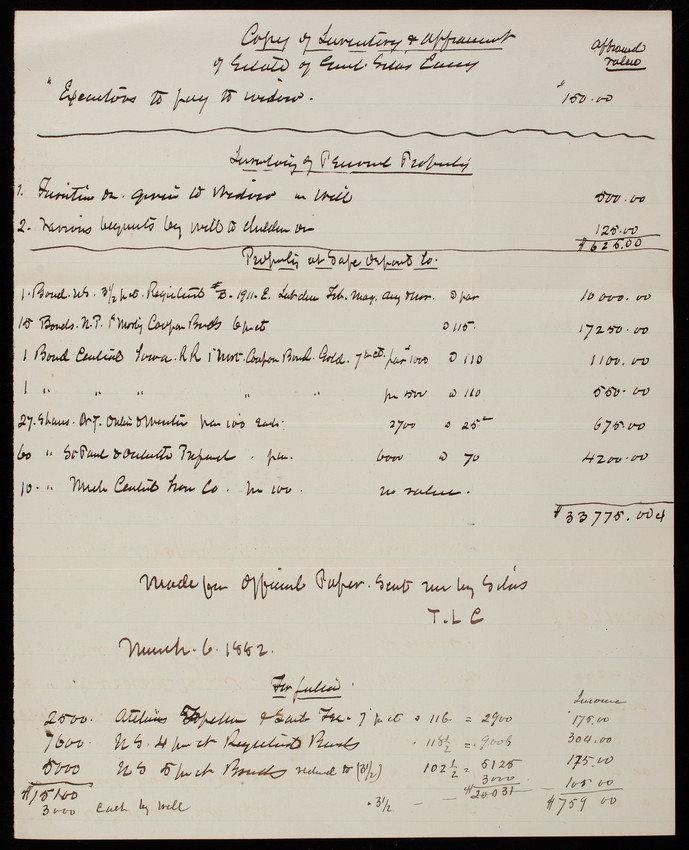 Copy of Inventory & appraisment
of Estate of Genl. Silas Casey
appraised value
Executors to pay to widow. $150.00
Inventory of Personal Property
1. Furniture &c. given to widow in Will 500.00
2. Various bequests by will to children &c 125.00
$625.00
Property at Safe Deposit Co.
1. Bond U.S. 3½ p ct. Registered Int due Feb. May. Aug & Nov. @ par 10000.00
15 Bonds. N.P. 1st Mortg Coupon Bonds 6 p ct @ 115. 17250.00
1 Bond Central Iowa. RR 1st Mort. Coupon Bond. Gold. 7 p ct. par $1000 @ 110 1100.00
1 " " " " " par 500 @ 110 550.00
27. Shares. N.Y. Ontario & Western par 100 each. 2700 @ 25 675.00
60 " St Paul & Duluth Prefered . par. 6000 @ 70 4200.00
10. " Mich Central Iron Co. par 100. no value.
$33775.00
Made from Official Paper. Sent me by Silas
T.L.C
March. 6. 1882.
For Julia
Income
2500. Atchison Topeka & Santa Fee. 7 p ct @ 116 = 2900 175.00
7600. U.S. 4 p ct Registered Bonds 118½ = 9006 304.00
5000 U.S 5 p ct Bonds reduced to (3½) 102½ = 5125 175.00
$15100 3000
3000 cash by will 3½ $20.031 105.00
$759 00